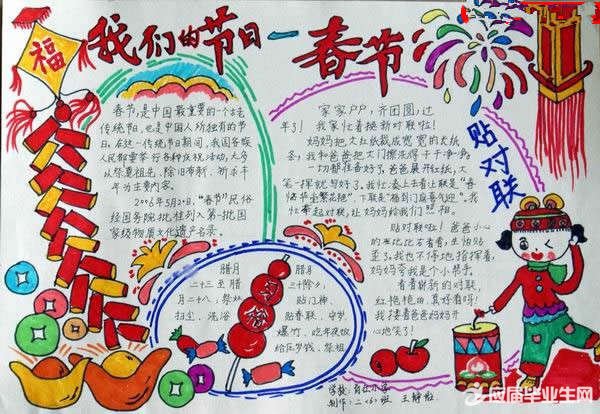 福
我们的节日—春节
春节,是中国最重要的一个古老
传统节日,也是中国人所独有的节
日。在这一传统节日期间,我国各族
人民都要举行各种庆祝活动,大多
以祭奠祖先、除旧布新、祈求丰
年为主要内容。
2006年5月20日,“春节”民俗
经国务院批准列入第一批国
家级物质文化遗产名录。
家家户户,齐团圆,过
年了!我家忙着换新对联啦!
妈妈把大红纸裁成宽宽的大纸
条,我和爸爸把大门擦洗得干干净净,
一切都准备好了。爸爸展开红纸,大
笔一挥就写好了。我忙凑上去看
下联是
忙拿起对联,让妈妈和我们
贴对联
贴对联啦!爸爸小心
我也不停地指挥着,
妈妈夸我是个小帮手。
看着崭新的对联,
红艳艳的,真好看呀!
我搂着爸爸妈妈开
心地笑了!
腊月
二十三至腊
月二十八:祭灶
扫尘、洗浴
腊月
三十除夕:
贴门神、
贴春联、守岁、
爆竹、吃年夜饭
给压岁钱、祭祖
学校:
制作:二〈6〉班 王静
应届毕业生网